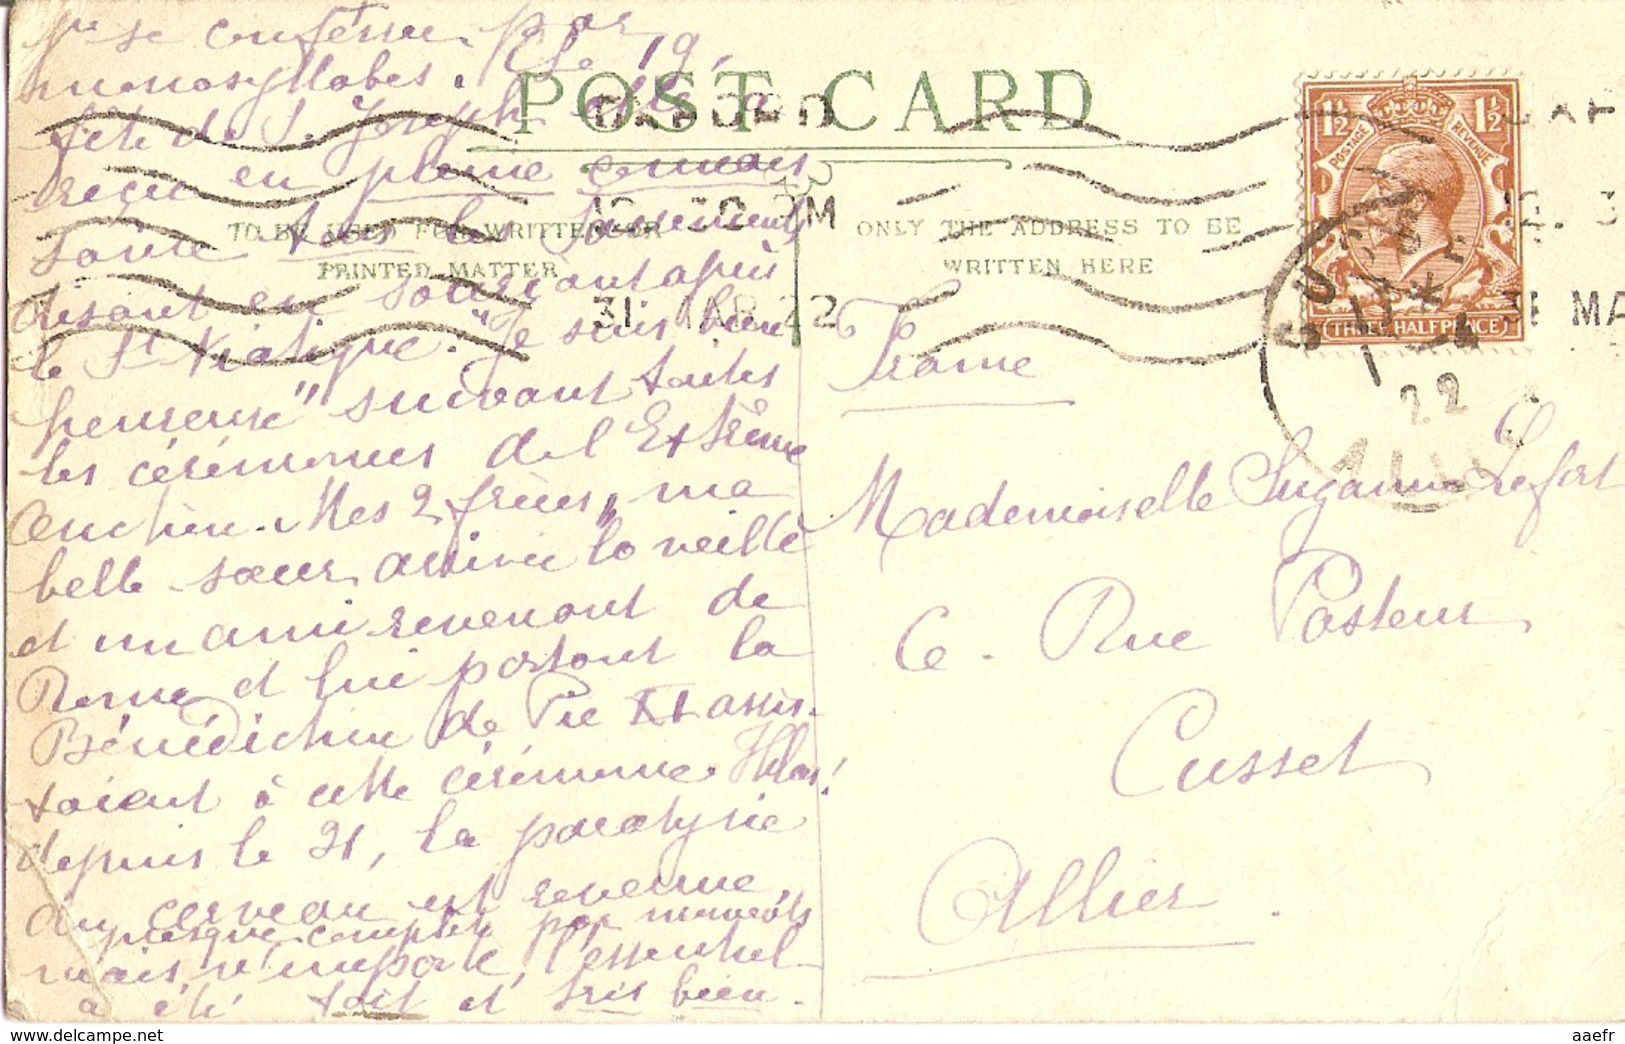 pu se confesser par
monosyllabes. Le 19,
fête de S. Joseph elle a
reçu en pleine connais
sance tous les Sacrements
disant en souriant après
le St Viatique: "Je suis bien
heureuse" suivant toutes
les cérémonies de l'Extrême
Onction. Mes 2 frères, ma
belle-sœur arrivée la veille
et un ami revenant de
Rome et lui portant la
Bénédiction de Pie XI assis-
taient à cette cérémonie. Hélas!
depuis le 21, la paralysie
du cerveau est revenue,
presque complète par moments
mais n'importe, l'essentiel
a été fait et très bien.
POST CARD
TO BE USED FOR WRITTEN OR
PRINTED MATTER
ONLY THE ADDRESS TO BE
WRITTEN HERE
OXFORD
12. 30 PM
31 MAR 22
1½ 1½
POSTAGE REVENUE
THREE HALFPENCE
OXF
12. 3
31 MA
CUSSET
22
ALLIER
France
Mademoiselle Suzanne Lefort
6. Rue Pasteur
Cusset
Allier.
aaefr